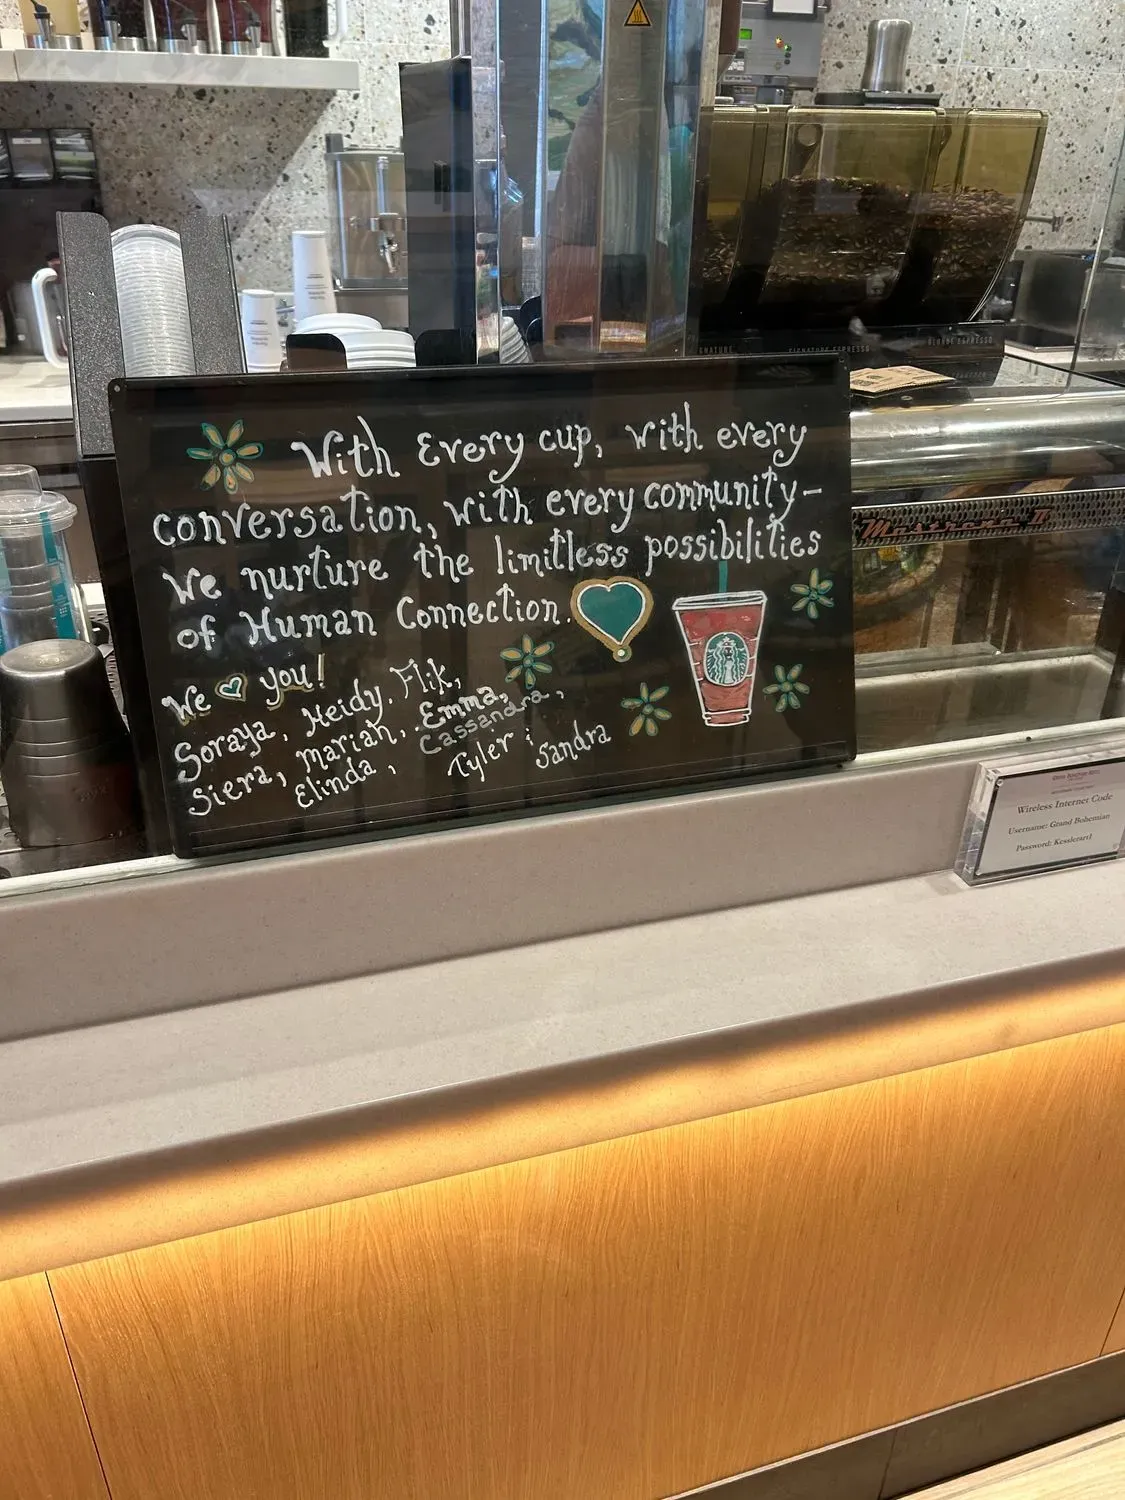 With Every cup, with every
conversation, with every community-
We nurture the limitless possibilities
of Human Connection.
We you!
Soraya, Heidy, Flik,
Siera, Mariah, Emma,
Elinda, Cassandra,
Tyler & Sandra
SIGNATURE ESPRESSO
BLONDE ESPRESSO
Mastrena II
Wireless Internet Code
Username: Grand Bohemian
Password: Kesslerart1